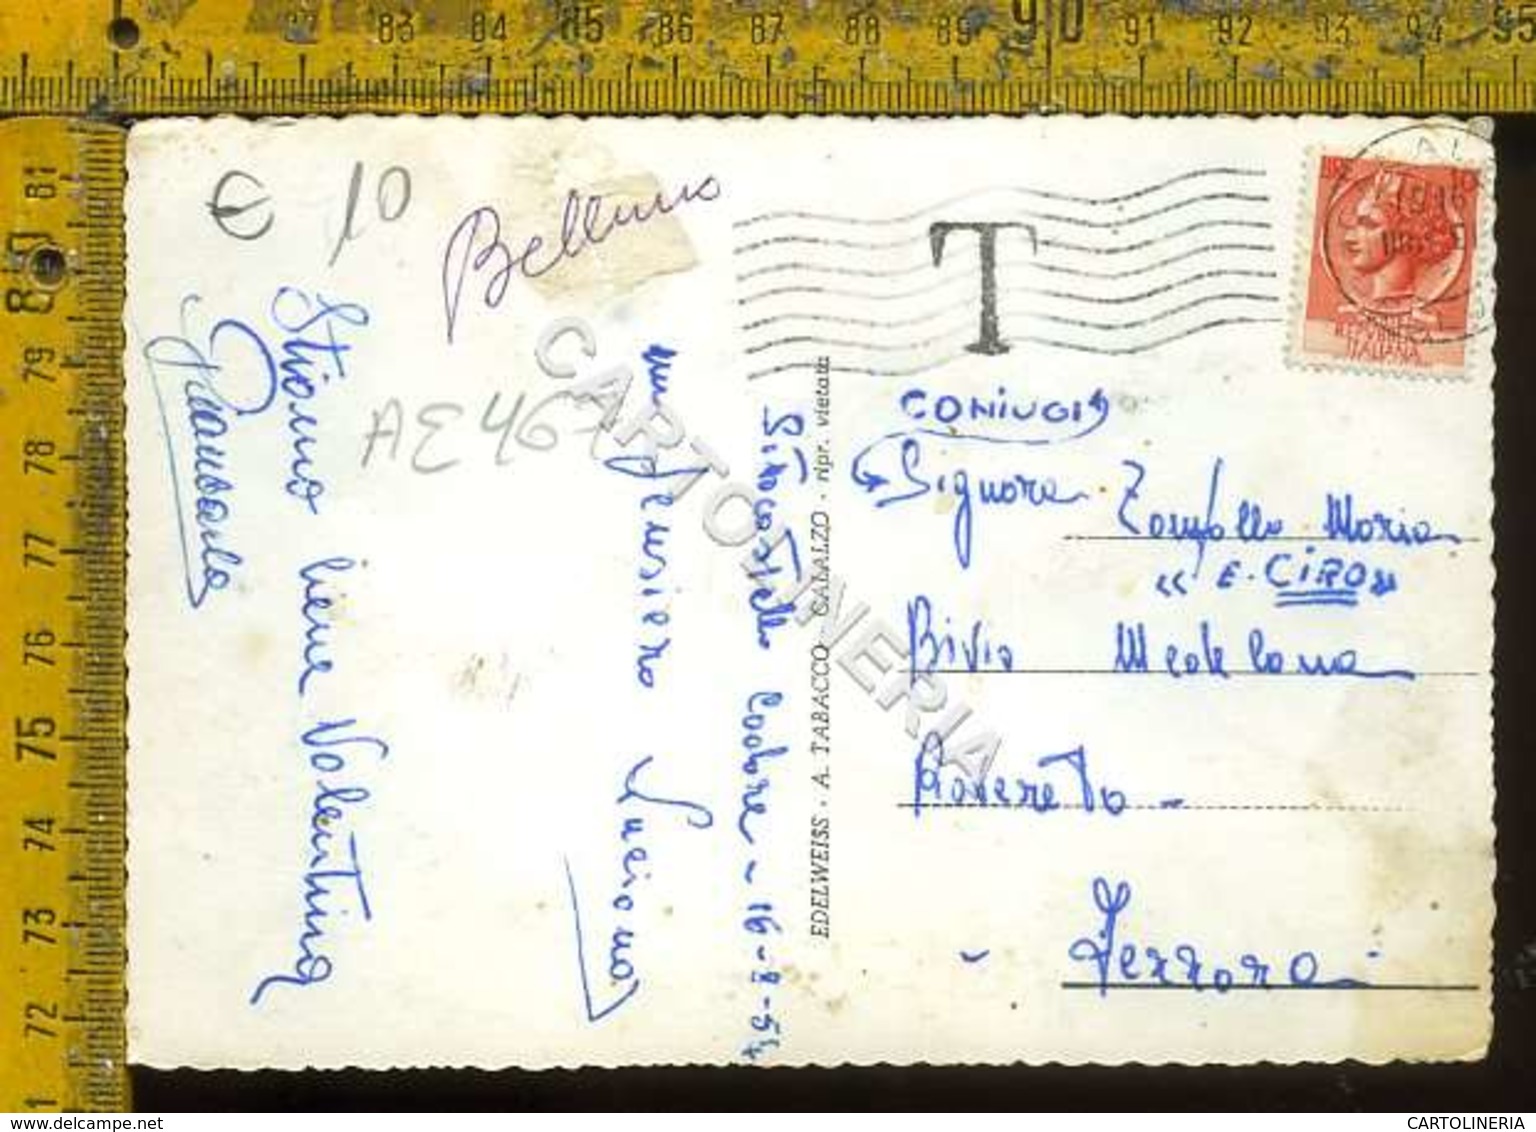 82 83 84 85 86 87 88 89 90 91 92 93 94 95
81
80
79
78
77
76
75
74
73
72
€ 10
Belluno
AE 46
Stiamo bene Valentina
Gianvarlo
un pensiero Luciano
S. Vito Cadore - 16-8-54
EDELWEISS - A. TABACCO - CALALZO - ripr. vietata
T
10
REPUBBLICA
ITALIANA
CONIUGI
Signora Zampollo Maria
« E. CIRO »
Bivio Medelana
Rovereto -
- Ferrara -
CARTOLINERIA
www.delcampe.net
CARTOLINERIA